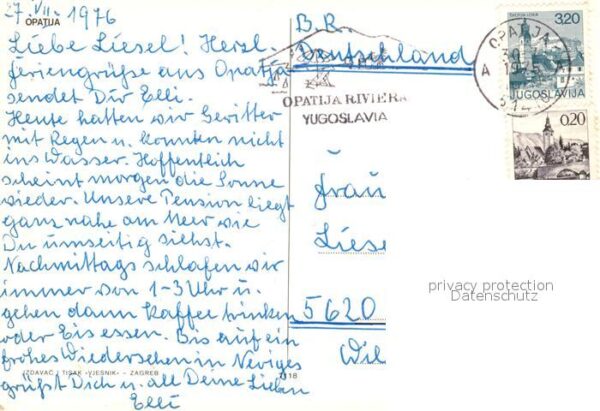 OPATIJA
7. VII. 1976
Liebe Liesel! Herzl.
Feriengrüße aus Opatja
sendet Dir Elli.
Heute hatten wir Gewitter
mit Regen u. konnten nicht
ins Wasser. Hoffentlich
scheint morgen die Sonne
wieder. Unsere Pension liegt
ganz nahe am Meer wie
Du umseitig siehst.
Nachmittags schlafen wir
immer von 1-3 Uhr u.
gehen dann Kaffee trinken
oder Eis essen. Bis auf ein
frohes Wiedersehen in Neviges
grüßt Dich u. all Deine Lieben
Elli
IZDAVAČ I TISAK «VJESNIK» – ZAGREB
B.R.
Deutschland
OPATIJA RIVIERA
YUGOSLAVIA
OPATIJA
A
3,20
JUGOSLAVIJA
0,20
Frau
Liese
5620
Wil
privacy protection
Datenschutz